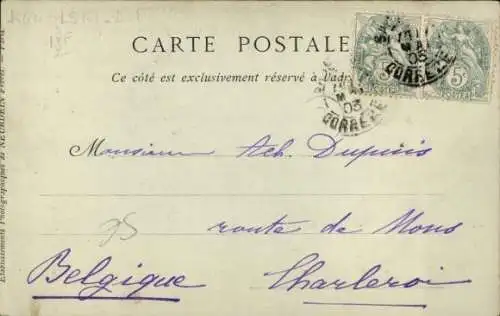 CARTE POSTALE
Ce côté est exclusivement réservé à l'adr
MAI
03
CORRÈZE
MAI
03
CORRÈZE
5c
5c
Monsieur Ach. Dupuis
35
route de Mons
Belgique
Charleroi
Etablissements Photographiques de NEURDEIN Frères. — Paris